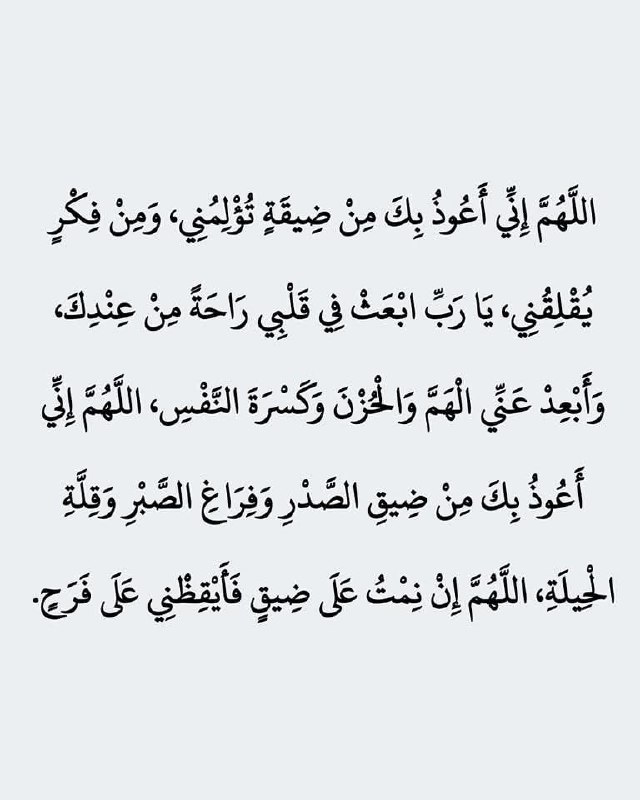 اللَّهُمَّ إِنِّي أَعُوذُ بِكَ مِنْ ضِيقَةٍ تُؤْلِمُنِي، وَمِنْ فِكْرٍ
يُقْلِقُنِي، يَا رَبِّ ابْعَثْ فِي قَلْبِي رَاحَةً مِنْ عِنْدِكَ،
وَأَبْعِدْ عَنِّي الْهَمَّ وَالْحُزْنَ وَكَسْرَةَ النَّفْسِ، اللَّهُمَّ إِنِّي
أَعُوذُ بِكَ مِنْ ضِيقِ الصَّدْرِ وَفِرَاغِ الصَّبْرِ وَقِلَّةِ
الْحِيلَةِ، اللَّهُمَّ إِنْ نِمْتُ عَلَى ضِيقٍ فَأَيْقِظْنِي عَلَى فَرَحٍ.